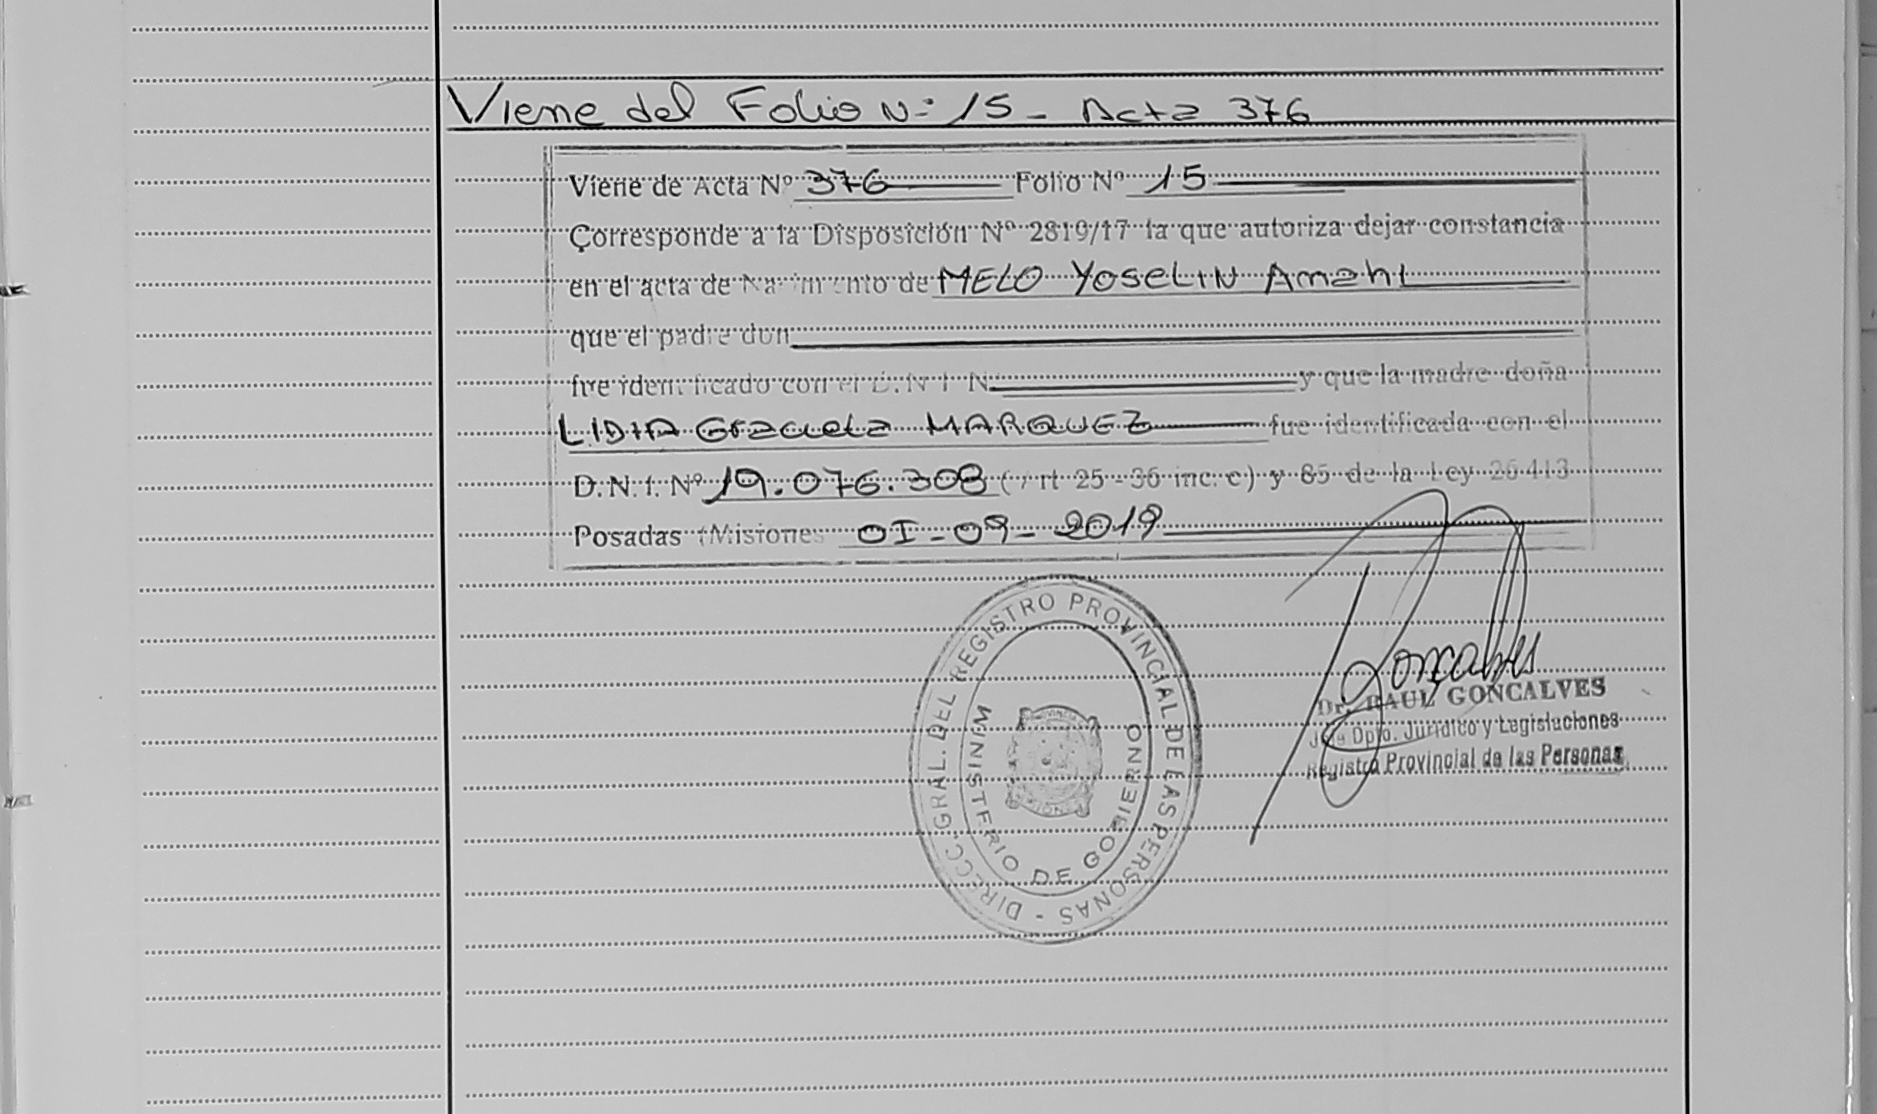 Viene del Folio Nº 15 - Acta 376
Viene de Acta Nº 376 Folio Nº 15
Corresponde a la Disposición Nº 2819/17 la que autoriza dejar constancia
en el acta de Nacimiento de MELO YOSELIN Amahi
que el padre don
fue identificado con el D.N.I. Nº y que la madre doña
LIDIA Graciela MARQUEZ fue identificada con el
D.N.I. Nº 19.076.308 (Art 25 - 36 inc. c) y 85 de la Ley 26.413
Posadas (Misiones 01-09-2019
DIRECC. GRAL. DEL REGISTRO PROVINCIAL DE LAS PERSONAS -
MINISTERIO DE GOBIERNO
Goncalves
Dr. RAUL GONCALVES
Jefe Dpto. Jurídico y Legislaciones
Registro Provincial de las Personas